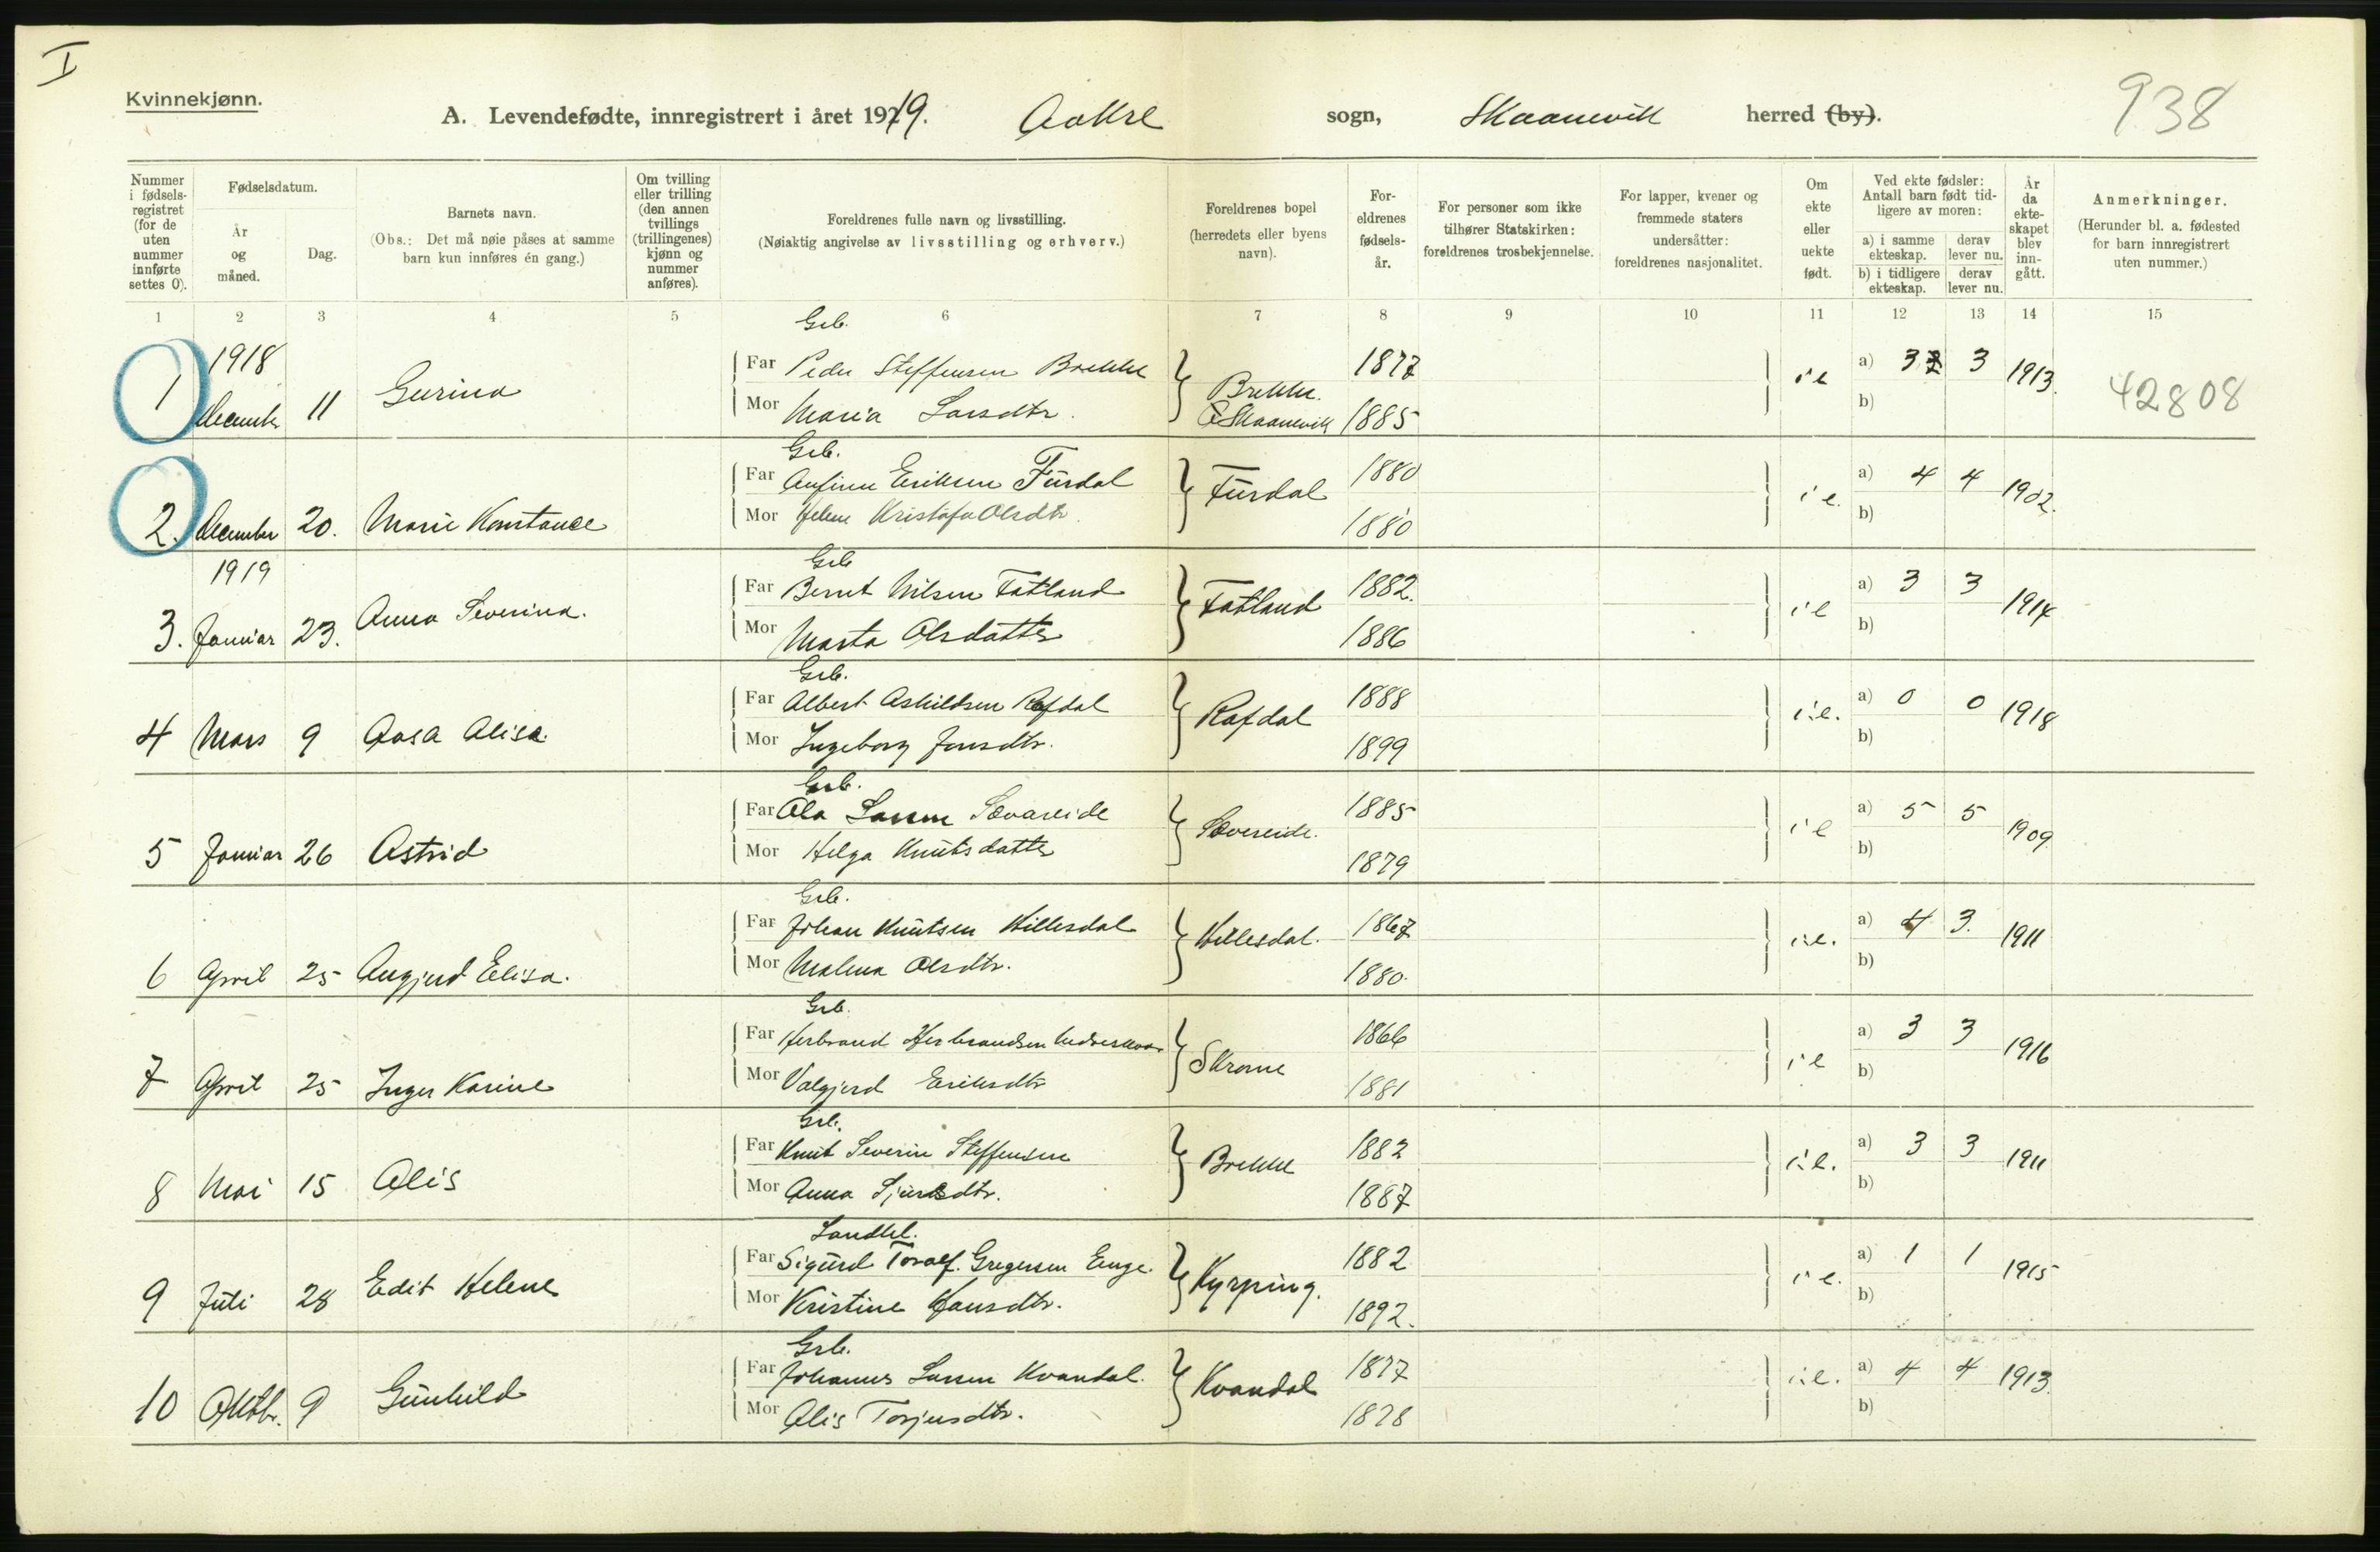 I
Kvinnekjønn.
A. Levendefødte, innregistrert i året 1919. Aakre sogn, Skaanevik herred (by).
938
Nummer i fødsels-registret (for de uten nummer innførte settes 0).
Fødselsdatum.
År og måned.
Dag.
Barnets navn.
(Obs.: Det må nøie påses at samme barn kun innføres én gang.)
Om tvilling eller trilling (den annen tvillings (trillingenes) kjønn og nummer anføres).
Foreldrenes fulle navn og livsstilling.
(Nøiaktig angivelse av livsstilling og erhverv.)
Foreldrenes bopel (herredets eller byens navn).
For-eldrenes fødsels-år.
For personer som ikke tilhører Statskirken: foreldrenes trosbekjennelse.
For lapper, kvener og fremmede staters undersåtter: foreldrenes nasjonalitet.
Om ekte eller uekte født.
Ved ekte fødsler: Antall barn født tid-ligere av moren:
a) i samme ekteskap.
derav lever nu.
b) i tidligere ekteskap.
derav lever nu.
År da ekte-skapet blev inn-gått.
Anmerkninger.
(Herunder bl. a. fødested for barn innregistrert uten nummer.)
1 2 3 4 5 6 7 8 9 10 11 12 13 14 15
Grb.
1918
1 December 11 Gurina
Far Peder Steffensen Brekke
Mor Maria Larsdtr.
Brekke. Skaanevik
1877
1885
a) 3 3 1913.
b)
42808
Grb.
2. December 20. Marie Konstance
Far Anfinn Eriksen Fürdal
Mor Helene Kristofa Olsdtr
Fürdal
1880
1880
i e.
a) 4 4 1902.
b)
1919
Grb
3. Januar 23. Anna Severina.
Far Bernt Nilsen Fatland
Mor Marta Olsdatter
Fatland
1882.
1886
i e
a) 3 3 1914
b)
Grb.
4 Mars 9 Aasa Alisa.
Far Albert Askildsen Rafdal
Mor Ingeborg Jonsdtr.
Rafdal
1888
1899
i.e.
a) 0 0 1918
b)
Grb.
5 Januar 26 Astrid
Far Ola Larsen Sævareide
Mor Helga Knütsdatter
Sævereide.
1885
1879
i e
a) 5 5 1909
b)
Grb.
6 April 25 Angjerd Elisa.
Far Johan Knütsen Hillesdal
Mor Malena Olsdtr.
Hillesdal.
1867
1880.
i.e.
a) 4 3. 1911
b)
Grb.
7 April 25 Inger Karine
Far Herbrand Herbrandsen
Mor Valgjerd Eriksdtr
1866
1881
i e
a) 3 3 1916
b)
Grb.
8 Mai 15 Alis
Far Knüt Severin Steffensen
Mor Anna Sjürsdtr.
Brekke
1882
1887
i.e.
a) 3 3 1911
b)
Landhl.
9 Jüli 28 Edit Helene
Far Sigürd Toralf. Gregersen Enge.
Mor Kristine Hansdtr.
Kyrping.
1882
1892.
i e.
a) 1 1 1915
b)
Grb.
10 Oktbr. 9 Günhild
Far Johannes Larsen Kvandal.
Mor Alis Torjusdtr.
Kvandal
1877
1878
i.e.
a) 4 4 1913.
b)